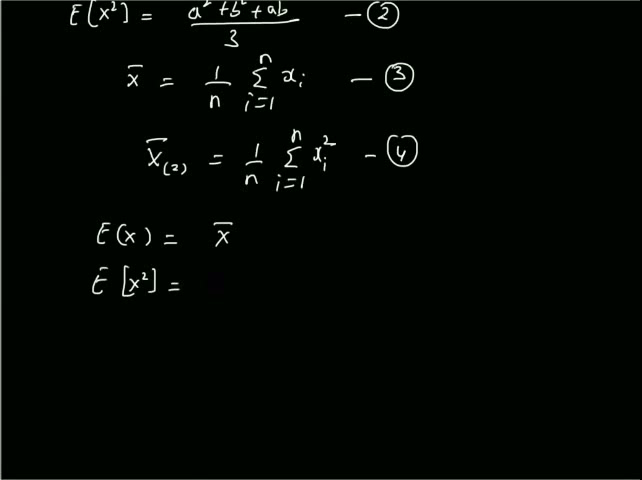 E[x²] = (a² + b² + ab)/3 — ②
x̄ = 1/n Σ_{i=1}^{n} xᵢ — ③
x̄₍₂₎ = 1/n Σ_{i=1}^{n} xᵢ² — ④
E(x) = x̄
E[x²] =